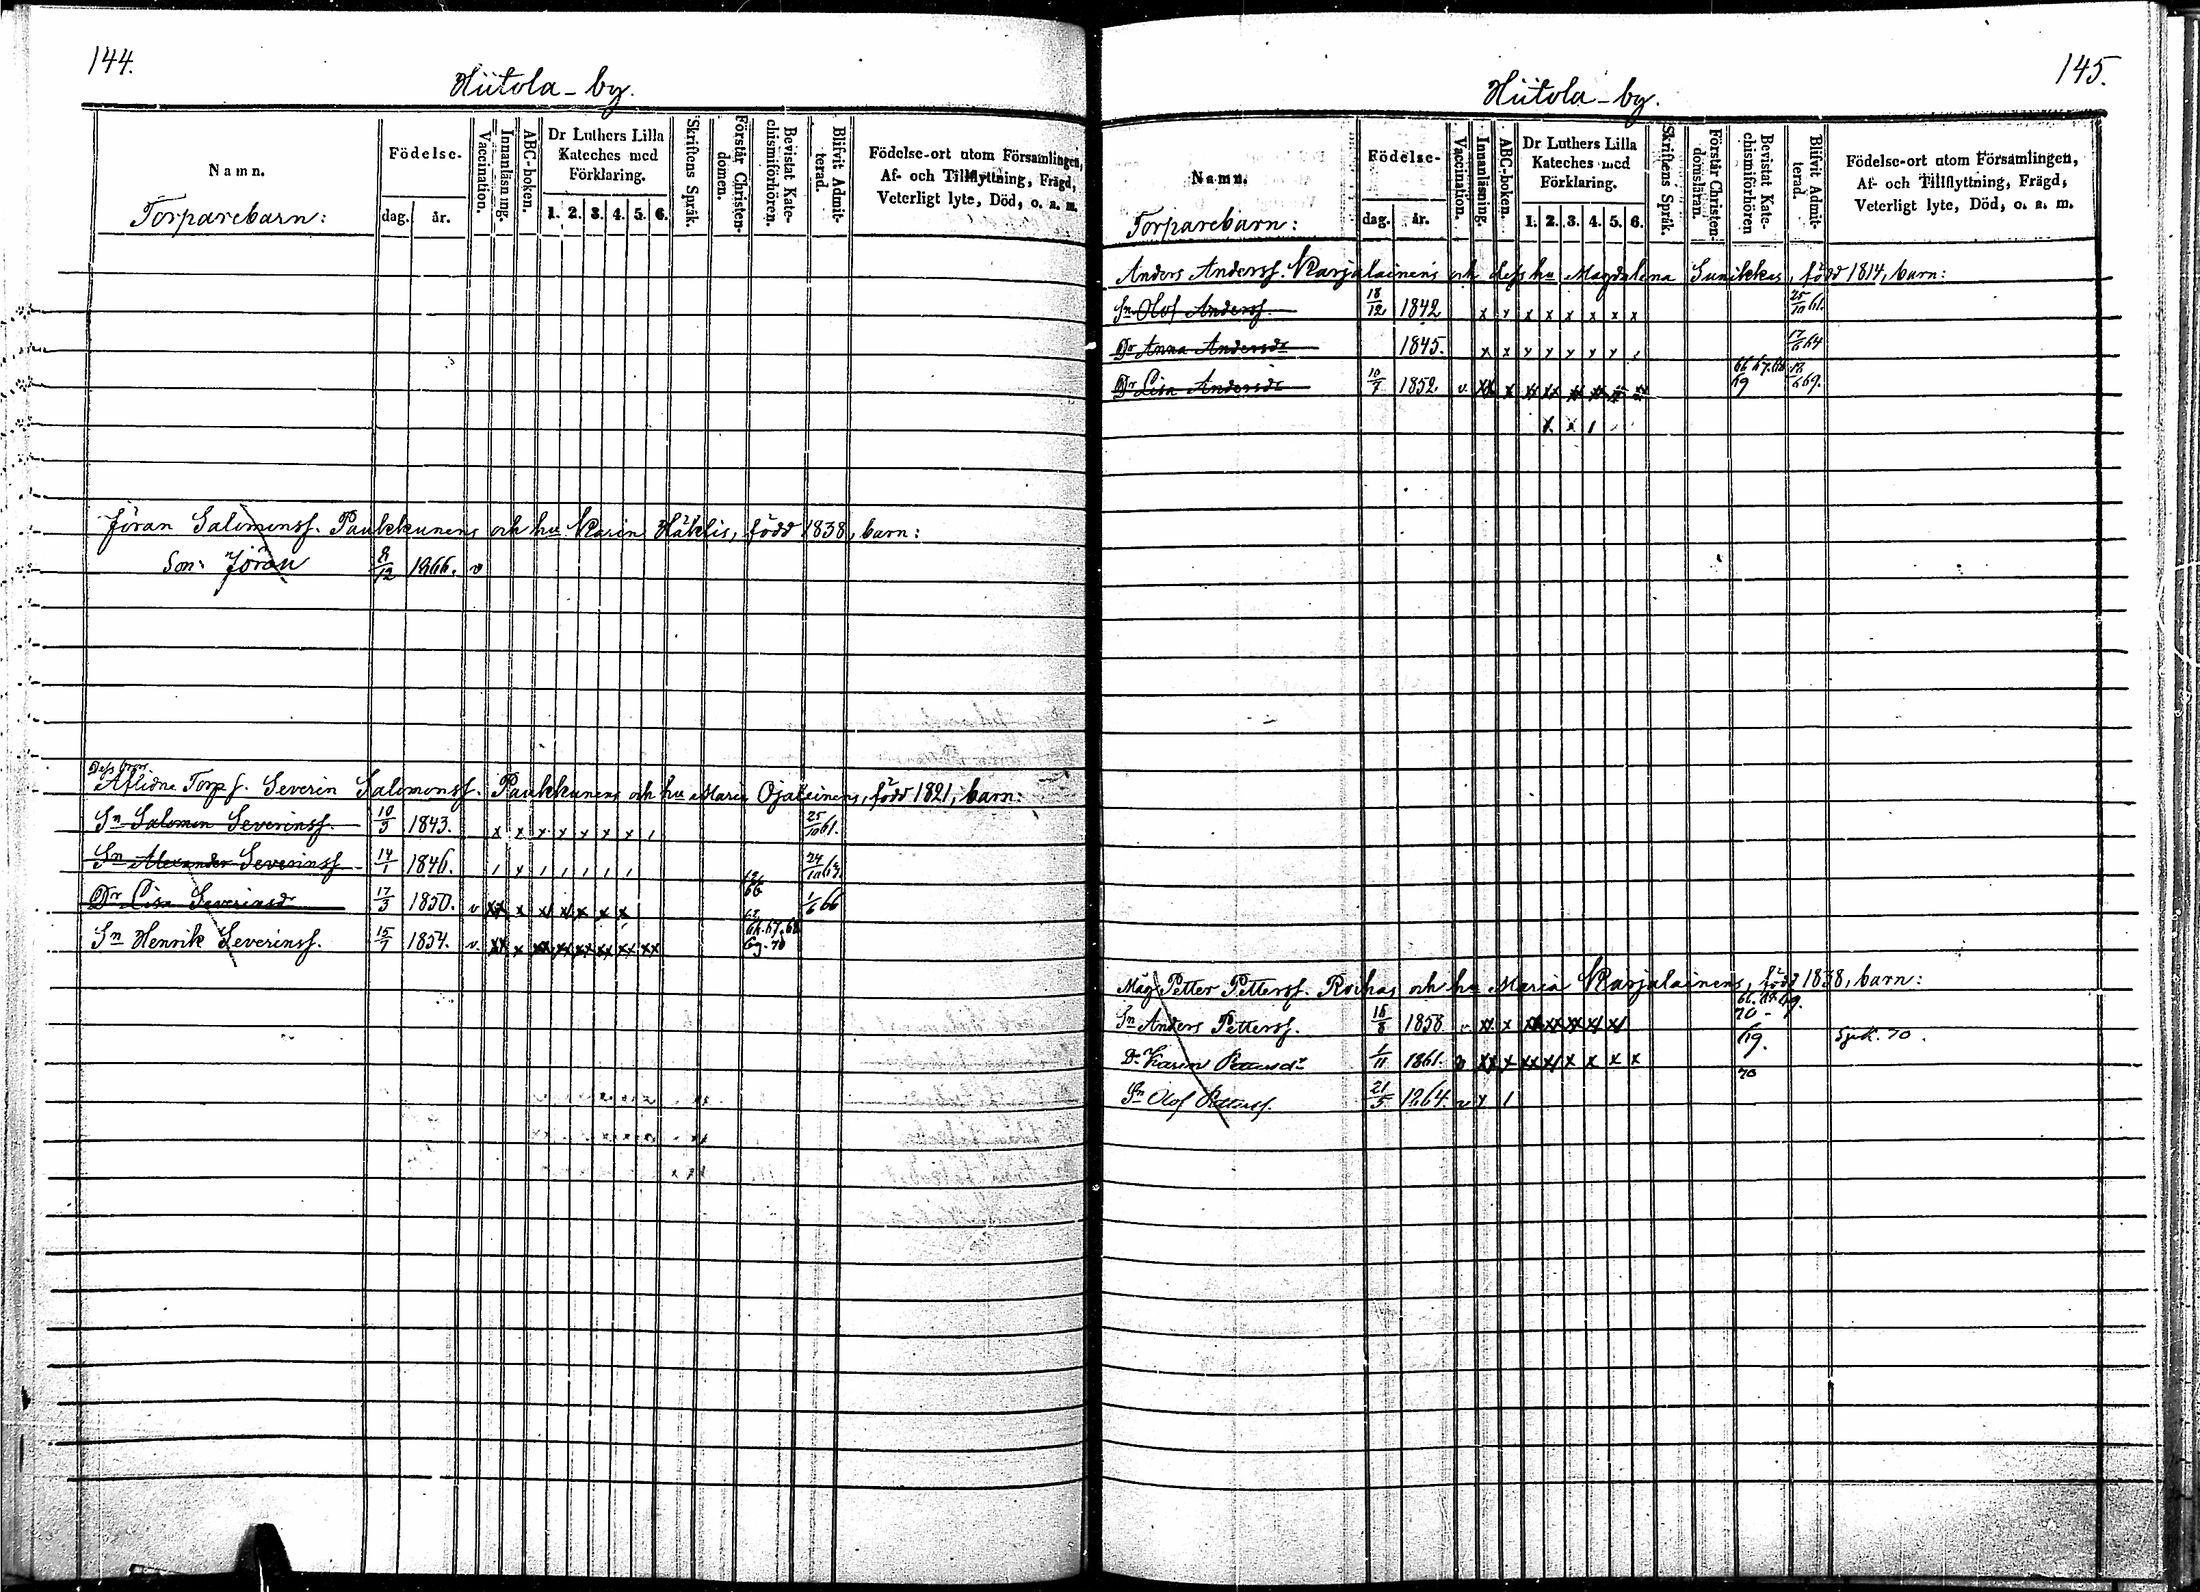 144.
Hiitola-by.
Namn.
Torparebarn:
Födelse-
dag. år.
Vaccination.
Innanläsning.
ABC-boken.
Dr Luthers Lilla
Kateches med
Förklaring.
1. 2. 3. 4. 5. 6.
Skriftens Språk.
Förstår Christen-
domen.
Bevistat Kate-
chismiförhören.
Blifvit Admit-
terad.
Födelse-ort utom Församlingen,
Af- och Tillflyttning, Frägd,
Veterligt lyte, Död, o. a. m.
Jöran Salomonss. Paukkunens och hu Karin Häklis, född 1838, barn:
Son: Jöran 8/12 1866. v
Dess bror.
Aflidne Torp s. Severin Salomonss. Paukkunens och hu Maria Ojalainens, född 1821, barn:
Sn Salomon Severinss. 10/3 1843. x x x x x x x 25/10 61.
Sn Alexander Severinss 14/1 1846. 24/10
Dr Lisa Severinsdr 17/3 1850. v xx x x x x x x 66 1/6 66
Sn Henrik Severinss. 15/7 1854. v. xx x xx xx xx xx xx xx 67. 69. 70
145.
Hiitola-by.
Namn.
Torparebarn:
Födelse-
dag. år.
Vaccination.
Innanläsning.
ABC-boken.
Dr Luthers Lilla
Kateches med
Förklaring.
1. 2. 3. 4. 5. 6.
Skriftens Språk.
Förstår Christen-
domsläran.
Bevistat Kate-
chismiförhören
Blifvit Admit-
terad.
Födelse-ort utom Församlingen,
Af- och Tillflyttning, Frägd,
Veterligt lyte, Död, o. a. m.
Anders Anderss. Karjalainens och dess hu Magdalena Sunikkas, född 1814, barn:
Sn Olof Anderss. 18/12 1842 x x x x x x x x 25/10 61.
Dr Anna Andersdr 1845. x x x x x x x 17/6 64
Dr Lisa Andersdr 10/7 1852. v xx x xx xx xx xx xx xx 66 67. 69 69.
x x
Måg Petter Petterss. Roihas och hu Maria Karjalainens, född 1838, barn:
Sn Anders Petterss. 16/8 1858. v xx x xx xx xx x x 66. 69. 70
Dr Karin Pettersdr 1/11 1861. v xx x xx x x x x x 69. Sjuk. 70.
Sn Olof Petterss. 21/5 1864. v x 70